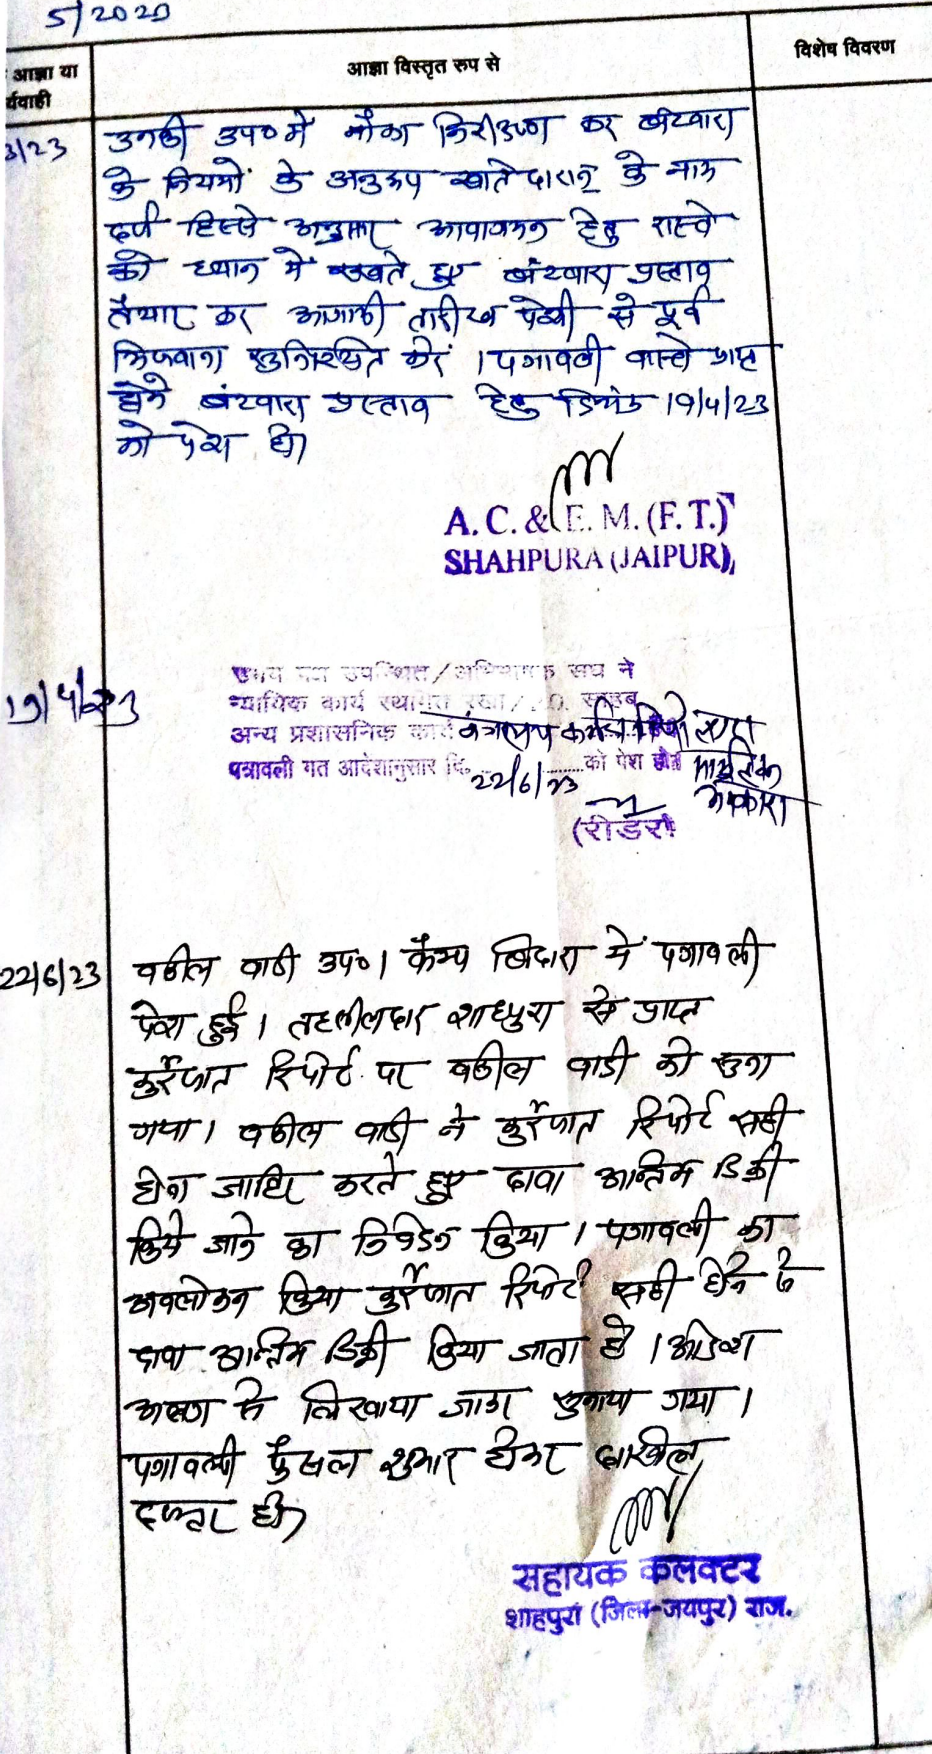 5/2023
आज्ञा या
र्यवाही
आज्ञा विस्तृत रुप से
विशेष विवरण
3/23
उनकी उप० में मौका निरीक्षण कर बंटवारा
के नियमों के अनुरूप खातेदारान् के नाम
दर्ज हिस्से अनुसार आवागमन हेतु रास्ते
को ध्यान में रखते हुए बंटवारा प्रस्ताव
तैयार कर आगामी तारीख पेशी से पूर्व
भिजवाना सुनिश्चित करें । पत्रावली वास्ते प्राप्त
होने बंटवारा प्रस्ताव हेतु दिनांक 19/4/23
को पेश हो।
A. C. & E. M. (F. T.)
SHAHPURA (JAIPUR),
19/4/23
उभय पक्ष उपस्थित/अभिभाषक संघ ने
न्यायिक कार्य स्थगित रखा/ .O. साहब
अन्य प्रशासनिक कार्य
पत्रावली गत आदेशानुसार दि. 22/6/23 को पेश हो।
अवकाश
(रीडर)
22/6/23
वकील वादी उप०। कैम्प में पत्रावली
पेश हुई। तहसीलदार शाहपुरा से प्राप्त
कुर्रेजात रिपोर्ट पर वकील वादी को सुना
गया। वकील वादी ने कुर्रेजात रिपोर्ट सही
होना जाहिर करते हुए दावा अन्तिम डिक्री
किये जाने का निवेदन किया। पत्रावली का
अवलोकन किया कुर्रेजात रिपोर्ट सही होने से
दावा अन्तिम डिक्री किया जाता है । आदेश
अलग से लिखाया जाकर सुनाया गया ।
पत्रावली फैसल शुमार होकर दाखिल
दफ्तर हो।
सहायक कलक्टर
शाहपुरा (जिला-जयपुर) राज.